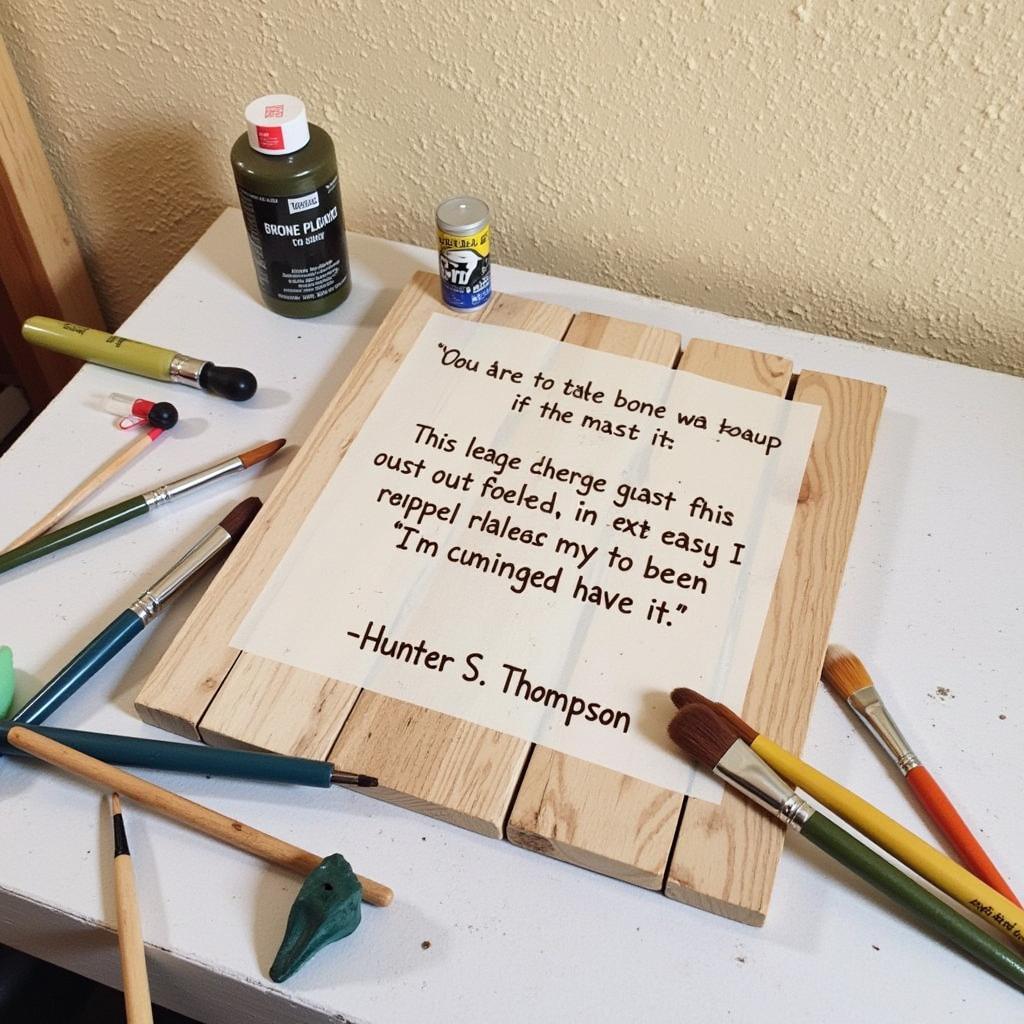 BRONE
"Oou are to take bone wa
if the mast it:
This leage cherge guast fhis
oust out foeled, in ext easy I
reippel rlaless my to been
"I'm cuminged have it."
-Hunter S. Thompson